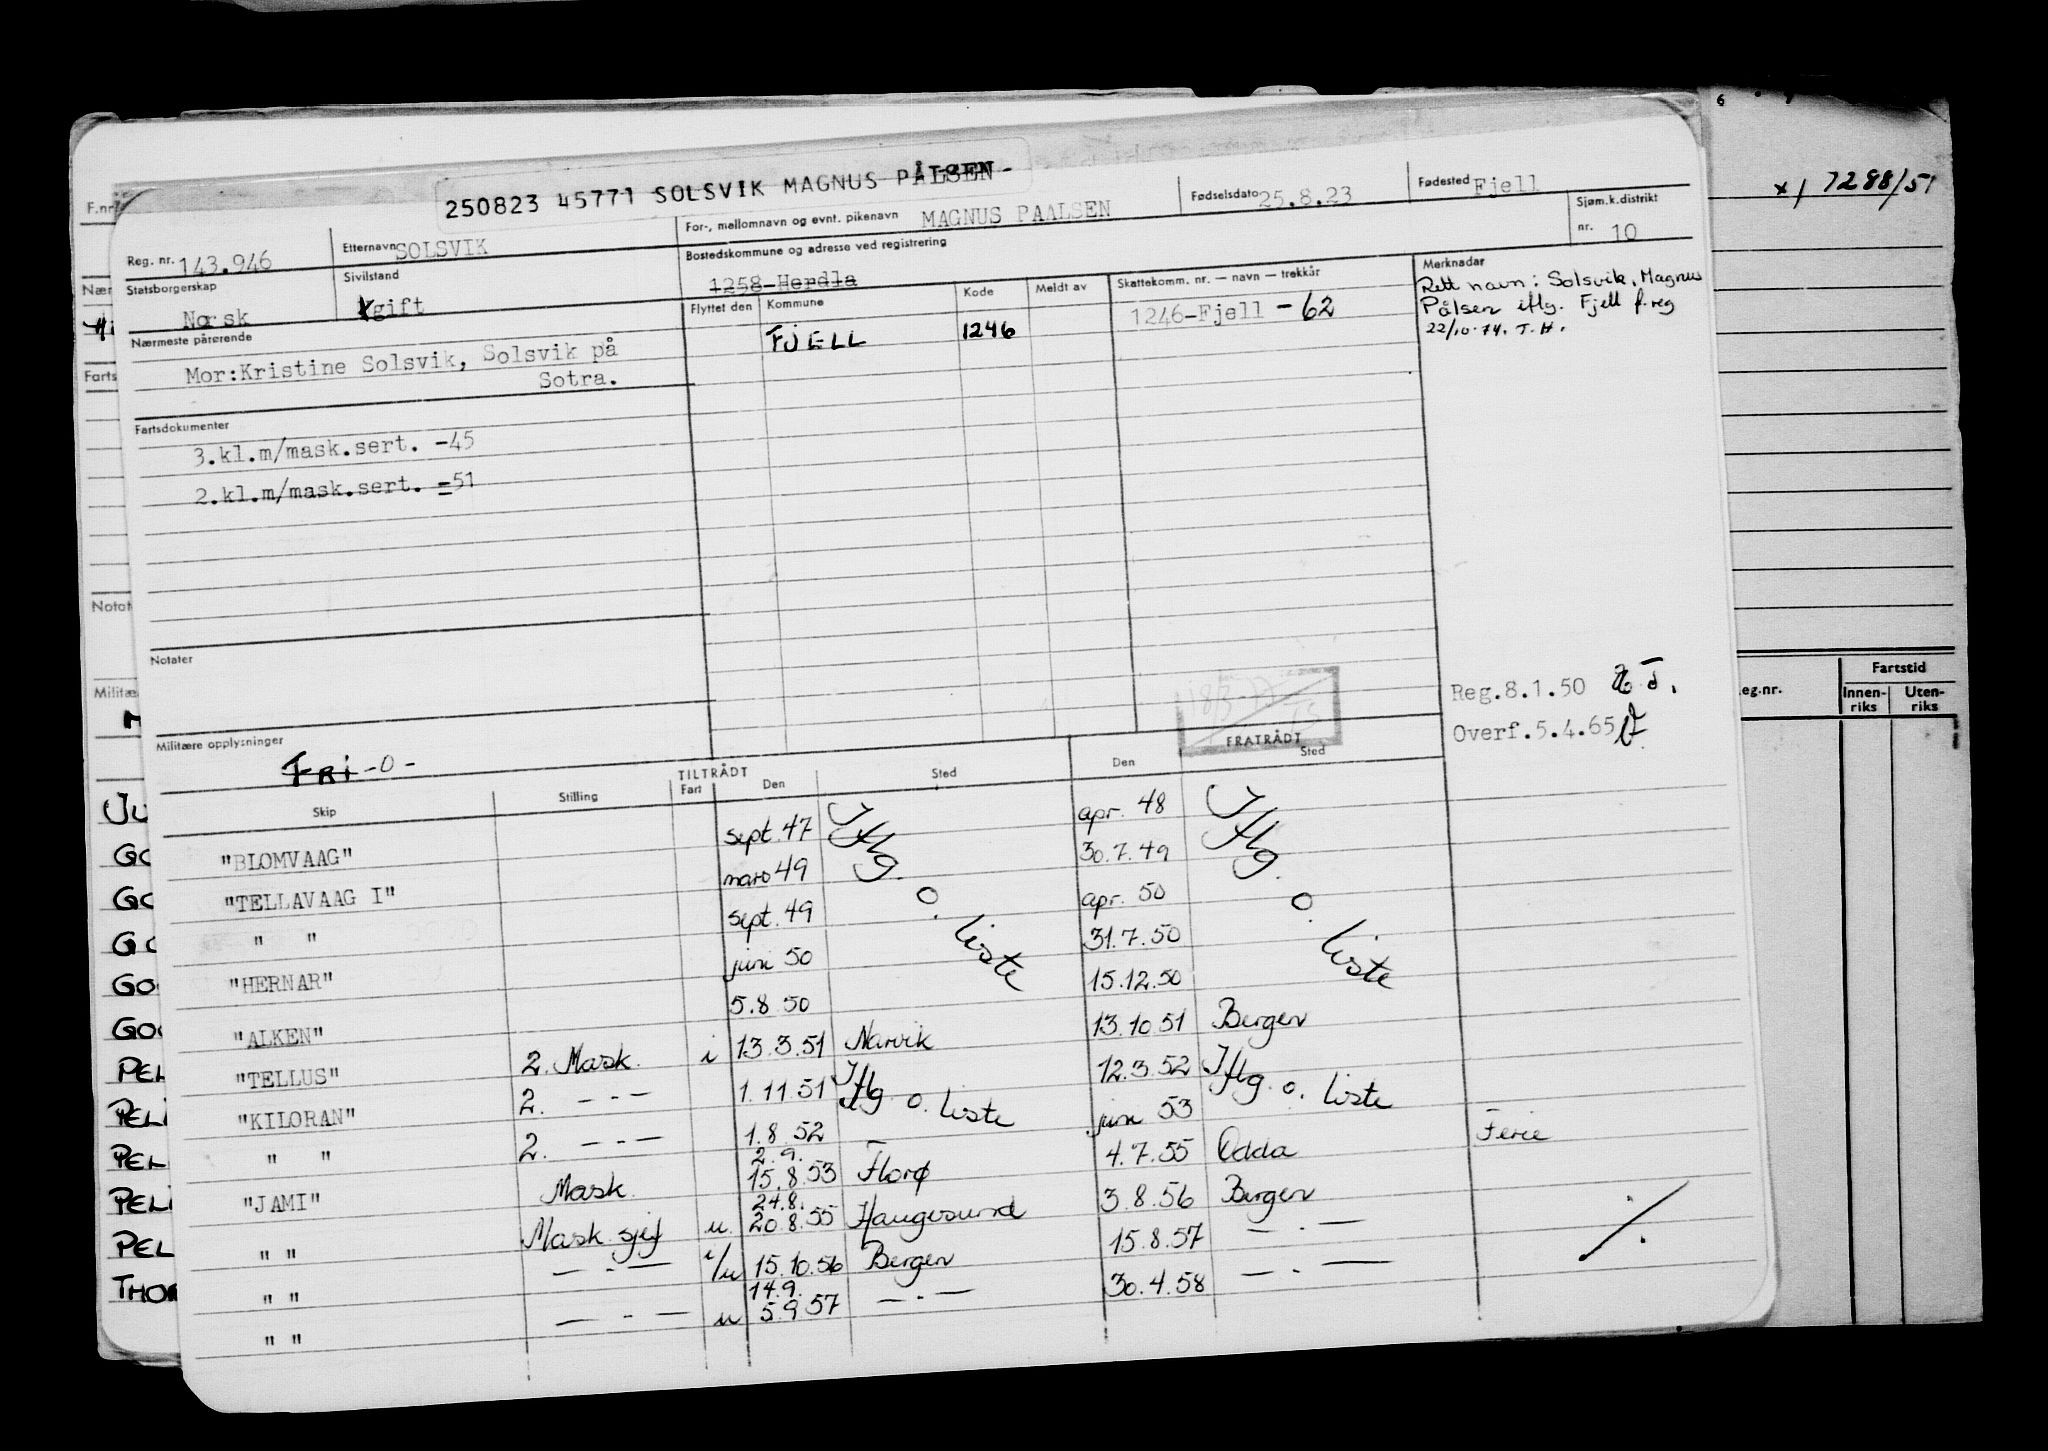 250823 45771 SOLSVIK MAGNUS PÅLSEN
Reg. nr. 143.946
Etternavn SOLSVIK
For-, mellomnavn og evnt. pikenavn MAGNUS PAALSEN
Fødselsdato 25.8.23
Fødested Fjell
Statsborgerskap Norsk
Sivilstand gift
Bostedskommune og adresse ved registrering
1258-Herdla
Sjøm.k.distrikt
nr. 10
Nærmeste pårørende
Mor:Kristine Solsvik, Solsvik på
Sotra.
Flyttet den Kommune Kode Meldt av Skattekomm. nr. — navn — trekkår
FJELL 1246 1246-Fjell -62
Merknader
Rett navn: Solsvik, Magnus
Pålsen iflg. Fjell f.reg
22/10-74. T.H.
Fartsdokumenter
3.kl.m/mask.sert. -45
2.kl.m/mask.sert. -51
Notater
Reg.8.1.50
Overf.5.4.65
Militære opplysninger
FRI -0-
TILTRÅDT FRATRÅDT
Skip Stilling Fart Den Sted Den Sted
"BLOMVAAG" sept. 47 Iflg. o. liste apr. 48 Iflg. o. liste
"TELLAVAAG I" mars 49 30.7.49
" " sept. 49 apr. 50
"HERNAR" juni 50 31.7.50
"ALKEN" 5.8.50 15.12.50
"TELLUS" 2. Mask. i 13.3.51 Narvik 13.10.51 Bergen
"KILORAN" 2. — - — 1.11.51 Iflg. o. liste 12.3.52 Iflg. o. liste
" " 2. — - — 1.8.52 juni 53
"JAMI" Mask. 2.9. 15.8.53 Florø 4.7.55 Odda Ferie
" " Mask. sjef u. 24.8. 20.8.55 Haugesund 3.8.56 Bergen
" " — - — i/u 15.10.56 Bergen 15.8.57 — - —
" " — - — u 14.9. 5.9.57 — - — 30.4.58 — - —
x) 7288/51
F.nr
Nær
Farts
Notat
Militæ
JU
GO
GO
GO
GO
GOO
PEL
PELI
PEL
PELI
PEL
THOR
eg.nr.
Fartstid
Innen-
riks
Uten-
riks